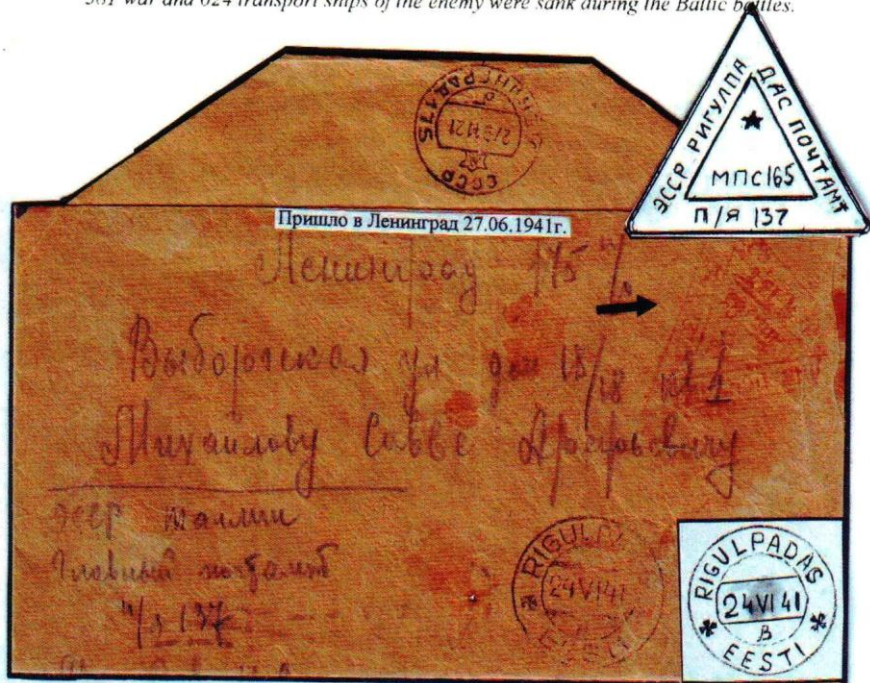 581 war and 624 transport ships of the enemy were sank during the Baltic battles.
ЛЕНИНГРАД 175
27 6 41 21
СССР
ЭССР РИГУЛПА ДАС ПОЧТАМТ
МПС165
П/Я 137
Пришло в Ленинград 27.06.1941г.
Ленинград 175
Выборгская ул дом 18/18 кв 1
Михайлову Савве
ЭССР Таллин
Главный почтамт
п/я 137
RIGULPADAS
24 VI 41
EESTI
RIGULPADAS
24 VI 41
B
EESTI